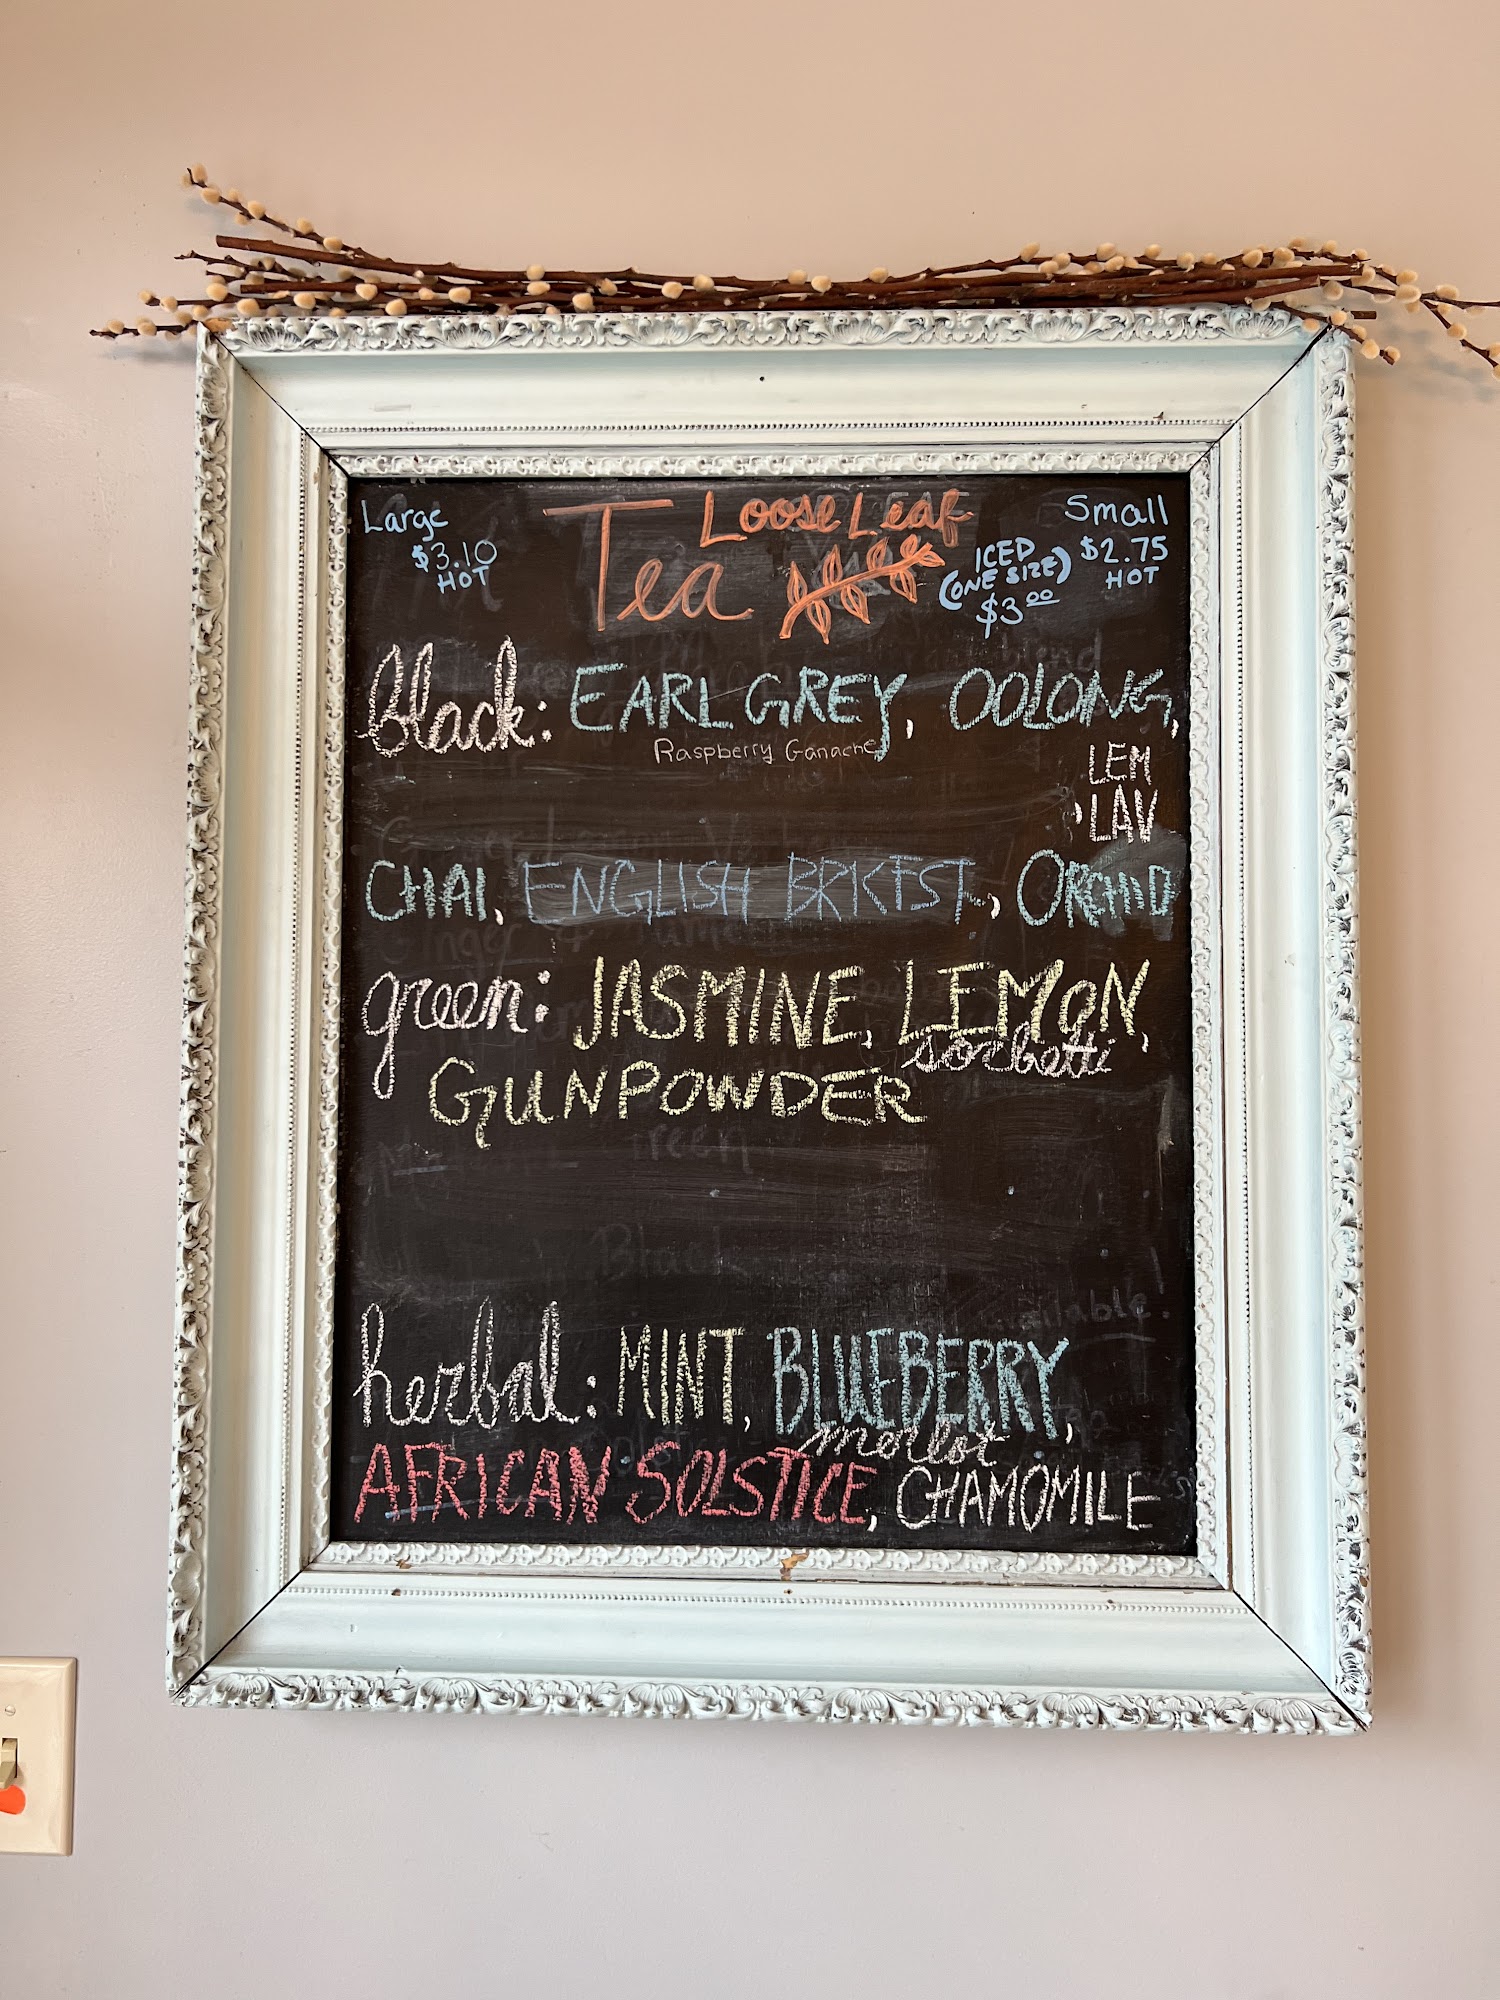 Large
$3.10
HOT
Tea Loose Leaf
ICED
(ONE SIZE)
$3.00
Small
$2.75
HOT
black: EARL GREY, OOLONG,
Raspberry Ganache
LEM
LAV
CHAI, ENGLISH BRKFST, ORCHID
green: JASMINE, LEMON,
sorbetti
GUNPOWDER
herbal: MINT, BLUEBERRY,
merlot
AFRICAN SOLSTICE, CHAMOMILE